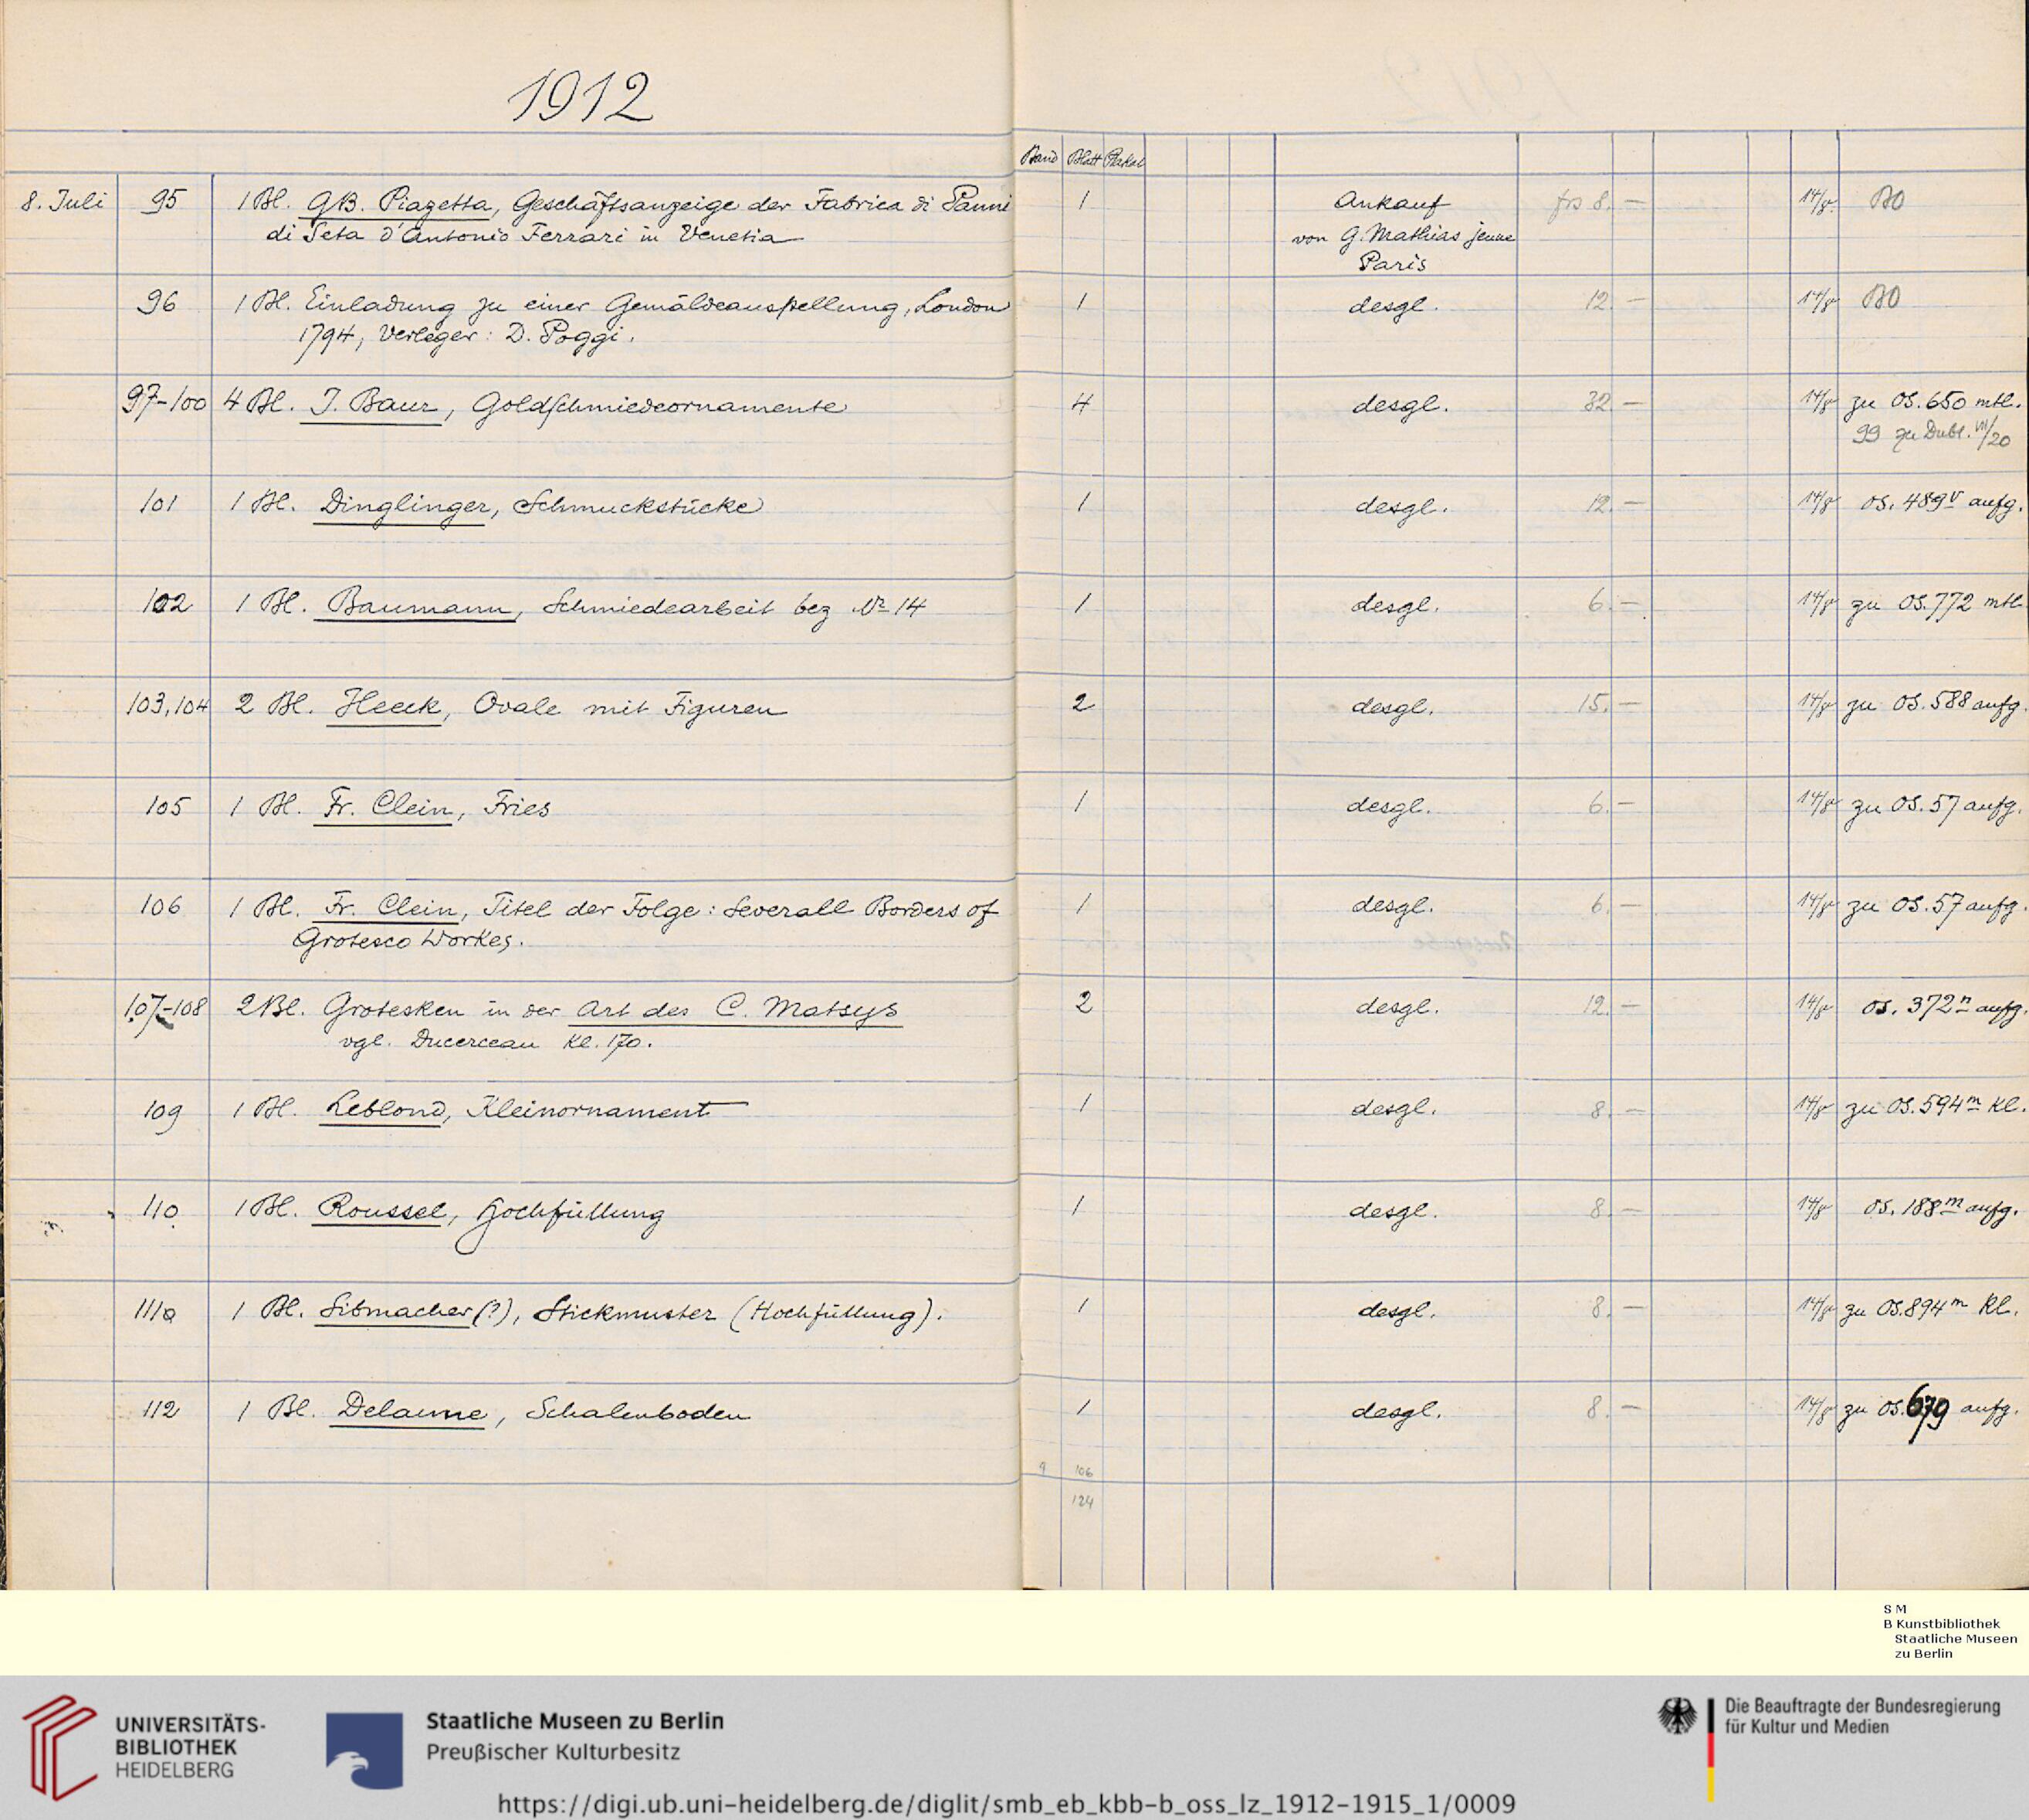 1912
Band Blatt Plakat
8. Juli 95 1 Bl. G.B. Piazetta, Geschäftsanzeige der Fabrica di Panni 1 Ankauf frs 8. — 14/8 BO
di Seta d'Antonio Ferrari in Venetia von G. Mathias jeune
Paris
96 1 Bl. Einladung zu einer Gemäldeausstellung, London 1 desgl. 12. — 14/8 BO
1794, Verleger: D. Poggi.
97-100 4 Bl. J. Baur, Goldschmiedeornamente 4 desgl. 32. — 14/8 zu OS. 650 mtl.
99 zu Dubl. VII/20
101 1 Bl. Dinglinger, Schmuckstücke 1 desgl. 12. — 14/8 OS. 489v aufg.
102 1 Bl. Baumann, Schmiedearbeit bez No 14 1 desgl. 6. — 14/8 zu OS. 772 mtl.
103, 104 2 Bl. Heeck, Ovale mit Figuren 2 desgl. 15. — 14/8 zu OS. 588 aufg.
105 1 Bl. Fr. Clein, Fries 1 desgl. 6. — 14/8 zu OS. 57 aufg.
106 1 Bl. Fr. Clein, Titel der Folge: Severall Borders of 1 desgl. 6. — 14/8 zu OS. 57 aufg.
Grotesco Workes.
107-108 2 Bl. Grotesken in der Art des C. Matsys 2 desgl. 12. — 14/8 OS. 372n aufg.
vgl. Ducerceau Kl. 170.
109 1 Bl. Leblond, Kleinornament 1 desgl. 8. — 14/8 zu OS. 594m Kl.
110 1 Bl. Roussel, Hochfüllung 1 desgl. 8. — 14/8 OS. 188m aufg.
111a 1 Bl. Sibmacher (?), Stickmuster (Hochfüllung). 1 desgl. 8. — 14/8 zu OS. 894m Kl.
112 1 Bl. Delaune, Schalenboden 1 desgl. 8. — 14/8 zu OS. 679 aufg.
9 106
124
S M
B Kunstbibliothek
Staatliche Museen
zu Berlin
UNIVERSITÄTS-
BIBLIOTHEK
HEIDELBERG
Staatliche Museen zu Berlin
Preußischer Kulturbesitz
Die Beauftragte der Bundesregierung
für Kultur und Medien
https://digi.ub.uni-heidelberg.de/diglit/smb_eb_kbb-b_oss_lz_1912-1915_1/0009